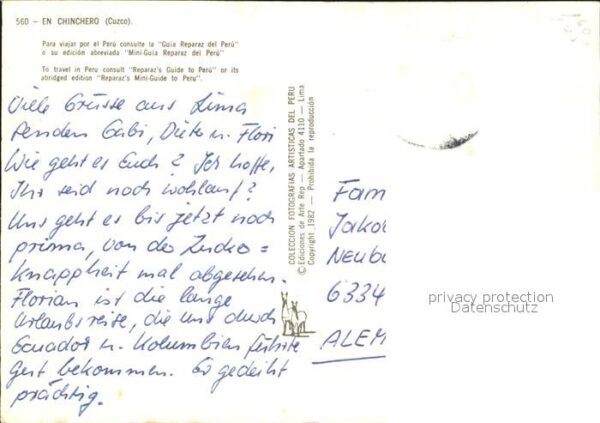 560 - EN CHINCHERO (Cuzco).
Para viajar por el Perú consulte la "Guía Reparaz del Perú"
o su edición abreviada "Mini-Guía Reparaz del Perú"
To travel in Peru consult "Reparaz's Guide to Peru" or its
abridged edition "Reparaz's Mini-Guide to Peru".
Viele Grüsse aus Lima
senden Gabi, Dieter u. Flori
Wie geht es Euch? Ich hoffe,
Ihr seid noch wohlauf?
Uns geht es bis jetzt noch
prima, von der Zucker=
knappheit mal abgesehen.
Florian ist die lange
Urlaubsreise, die uns durch
Ecuador u. Kolumbien führte
gut bekommen. Er gedeiht
prächtig.
COLECCION FOTOGRAFIAS ARTISTICAS DEL PERU
© Ediciones de Arte Rep — Apartado 4110 — Lima
Copyright 1982 — Prohibida la reproducción
Fam
Jako
Neub
6334
ALEM
privacy protection
Datenschutz